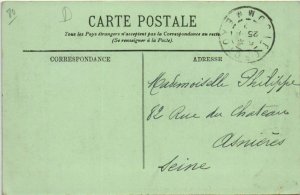 CARTE POSTALE
Tous les Pays étrangers n'acceptent pas la Correspondance au recto
(Se renseigner à la Poste).
CORRESPONDANCE
ADRESSE
Mademoiselle Philippe
82 Rue du Chateau
Asnières
Seine
D
25